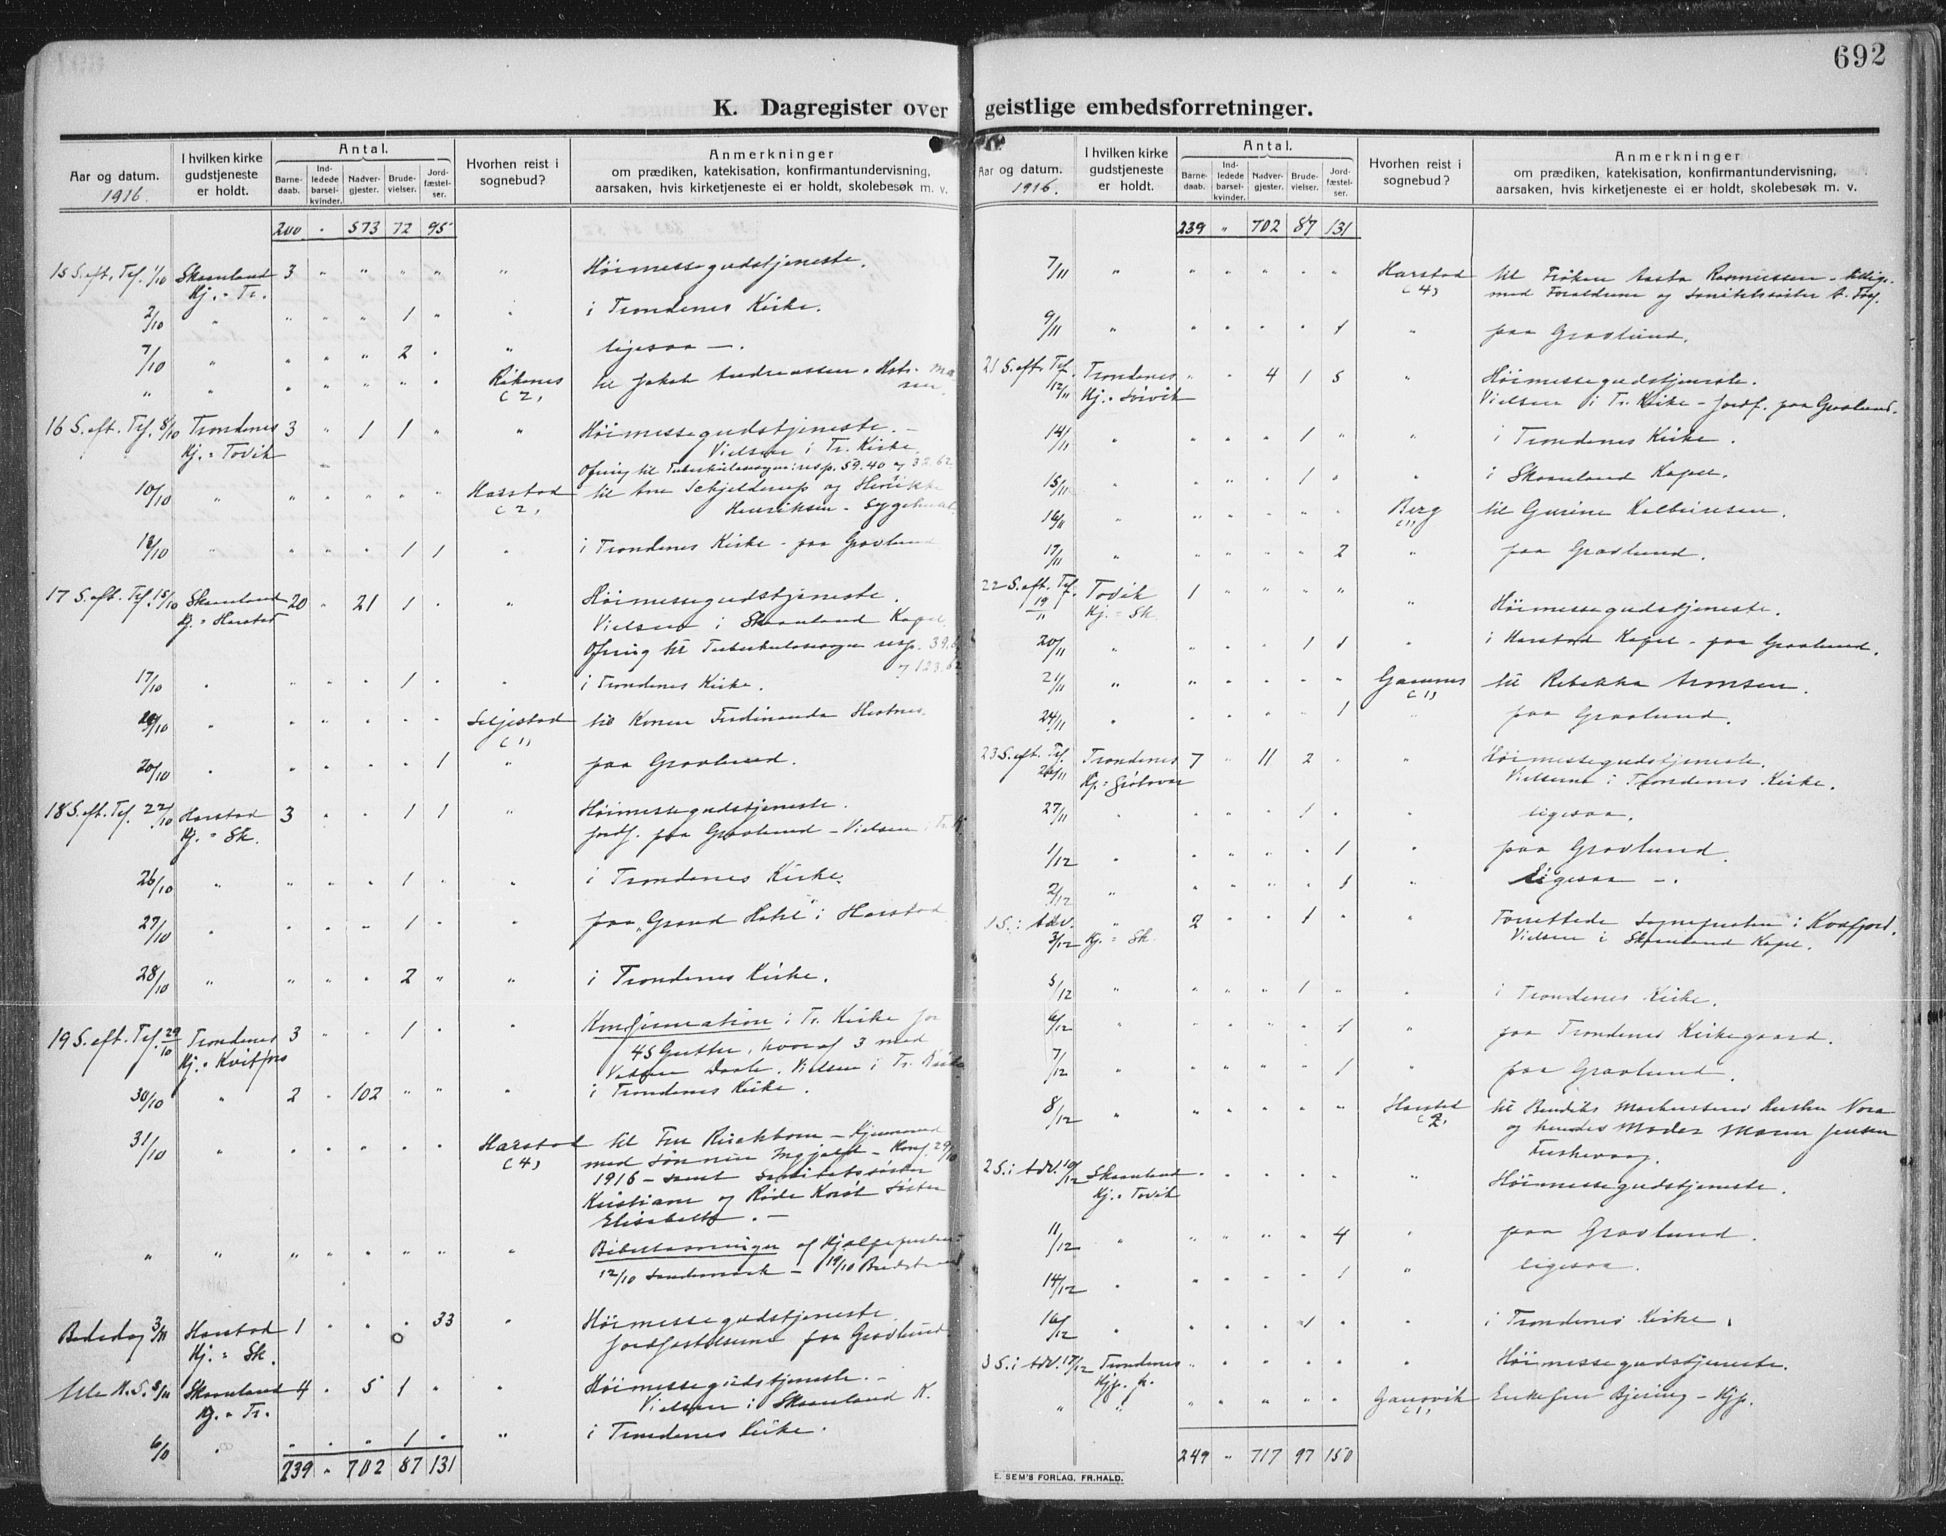 692
K. Dagregister over geistlige embedsforretninger.
Aar og datum. 1916.
I hvilken kirke gudstjeneste er holdt.
Antal.
Barnedaab.
Indledede barselkvinder.
Nadvergjester.
Brudevielser.
Jordfæstelser.
Hvorhen reist i sognebud?
Anmerkninger
om prædiken, katekisation, konfirmantundervisning,
aarsaken, hvis kirketjeneste ei er holdt, skolebesøk m. v.
200 " 573 72 95
15 S. eft. Tref. 1/10 Skaanland 3 " " " " " Høimessegudstjeneste.
Kj. = Tr.
2/10 " " " " 1 " " i Trondenes Kirke.
7/10 " " " " 2 " " ligesaa —.
" " " " " " " Røkenes til Jakob Andreassen
(2)
16 S. eft. Tref. 8/10 Trondenes 3 " 1 1 " " Høimessegudstjeneste. —
Kj. = Tovik Vielsen i Tr. Kirke.
Ofring til Tuberkulosesagen: resp. 59.40 og 32.62
10/10 " " " " " " Harstad til Schjelderup og Henrikke
(2) Henriksen - Sygehuset.
" " " " 1 1 " i Trondenes Kirke - paa Gravlund
17 S. eft. Tref. 15/10 Skaanland 20 " 21 1 " " Høimessegudstjeneste.
Kj. = Harstad Vielsen i Skaanland Kapel.
Ofring til Tuberkulosesagen resp.
17/10 " " " " 1 " " i Trondenes Kirke.
" " " " " " Seljestad til Konen Ferdinanda
(1)
20/10 " " " " " 1 " paa Gravlund.
18 S. eft. Tref. 22/10 Harstad 3 " " 1 1 " Høimessegudstjeneste.
Kj. = Sk. Jordf. paa Gravlund - Vielsen i Tr. K.
26/10 " " " " 1 " " i Trondenes Kirke.
27/10 " " " " 1 " " paa "Grand Hotel" i Harstad
28/10 " " " " 2 " " i Trondenes Kirke.
19 S. eft. Tref. 29/10 Trondenes 3 " " 1 " " Konfirmation i Tr. Kirke for
Kj. = 45 Gutter, hvoraf 3 med
Voksen Daab. Vielsen i Tr. Kirke
30/10 " 2 " 102 " " " i Trondenes Kirke.
31/10 " " " " " " Harstad til Fru — Hjemmet
(4) med Sønnen — Konf. 29/10
1916 — samt Sanitetssøster
Kristiane og Røde Kors Søster
Elisabeth. —
" " " " " " " " Bibellæsninger af Hjælpepresten:
12/10 Sandemark — 19/10
Bededag 3/11 Harstad 1 " " 0 33 " Høimessegudstjeneste.
Kj. = Sk. Jordfæstelserne paa Gravlund
Alle H. S. 5/11 Skaanland 4 " 5 1 " " Høimessegudstjeneste. —
Kj. = Tr. Vielsen i Skaanland K.
" " " " 1 " " i Trondenes Kirke.
239 " 702 87 131
Aar og datum. 1916.
I hvilken kirke gudstjeneste er holdt.
Antal.
Barnedaab.
Indledede barselkvinder.
Nadvergjester.
Brudevielser.
Jordfæstelser.
Hvorhen reist i sognebud?
Anmerkninger
om prædiken, katekisation, konfirmantundervisning,
aarsaken, hvis kirketjeneste ei er holdt, skolebesøk m. v.
239 " 702 87 131
7/11 " " " " " " Harstad til Frøken Aasta Rasmussen - tillige-
(4) med Forældrene og Sanitetssøster
9/11 " " " " " 1 " paa Gravlund.
21 S. eft. Tref. 12/11 Trondenes " " 4 1 5 " Høimessegudstjeneste.
Kj. = Vielsen i Tr. Kirke - Jordf. paa Gravlund.
14/11 " " " " 1 " " i Trondenes Kirke.
15/11 " " " " 1 " " i Skaanland Kapel.
16/11 " " " " " " Berg til Gurine
(1)
17/11 " " " " " 2 " paa Gravlund.
22 S. eft. Tref. 19/11 Tovik 1 " " " " " Høimessegudstjeneste.
Kj. = Sk.
20/11 " " " " 1 1 " i Harstad Kapel - paa Gravlund.
21/11 " " " " " " til Rebekka
(1)
24/11 " " " " " 1 " paa Gravlund.
23 S. eft. Tref. 26/11 Trondenes 7 " 11 2 " " Høimessegudstjeneste.
Kj. = Grøtavær Vielserne i Trondenes Kirke.
27/11 " " " " 1 " " ligesaa.
1/12 " " " " " 1 " paa Gravlund.
2/12 " " " " " 1 " Ligesaa —.
1 S. i Adv. 3/12 " 2 " " 1 " " Forrettede Sognepresten i Kvæfjord.
Kj. = Sk. Vielsen i Skaanland Kapel.
5/12 " " " " 1 " " i Trondenes Kirke.
6/12 " " " " " 1 " paa Trondenes Kirkegaard.
7/12 " " " " " 1 " paa Gravlund.
8/12 " " " " " " Harstad til Bendiks Hustru Nora
(2) og hendes Moder Jensen
2 S. i Adv. 10/12 Skaanland " " " " " " Høimessegudstjeneste.
Kj. = Tovik
11/12 " " " " " 4 " paa Gravlund.
14/12 " " " " " 1 " ligesaa.
16/12 " " " " 1 " " i Trondenes Kirke.
3 S. i Adv. 17/12 Trondenes " " " " " " Høimessegudstjeneste.
" " " " " " " Enkefru Bjering - Hjp.
(1)
249 " 717 97 150
E. SEM'S FORLAG, FR.HALD.